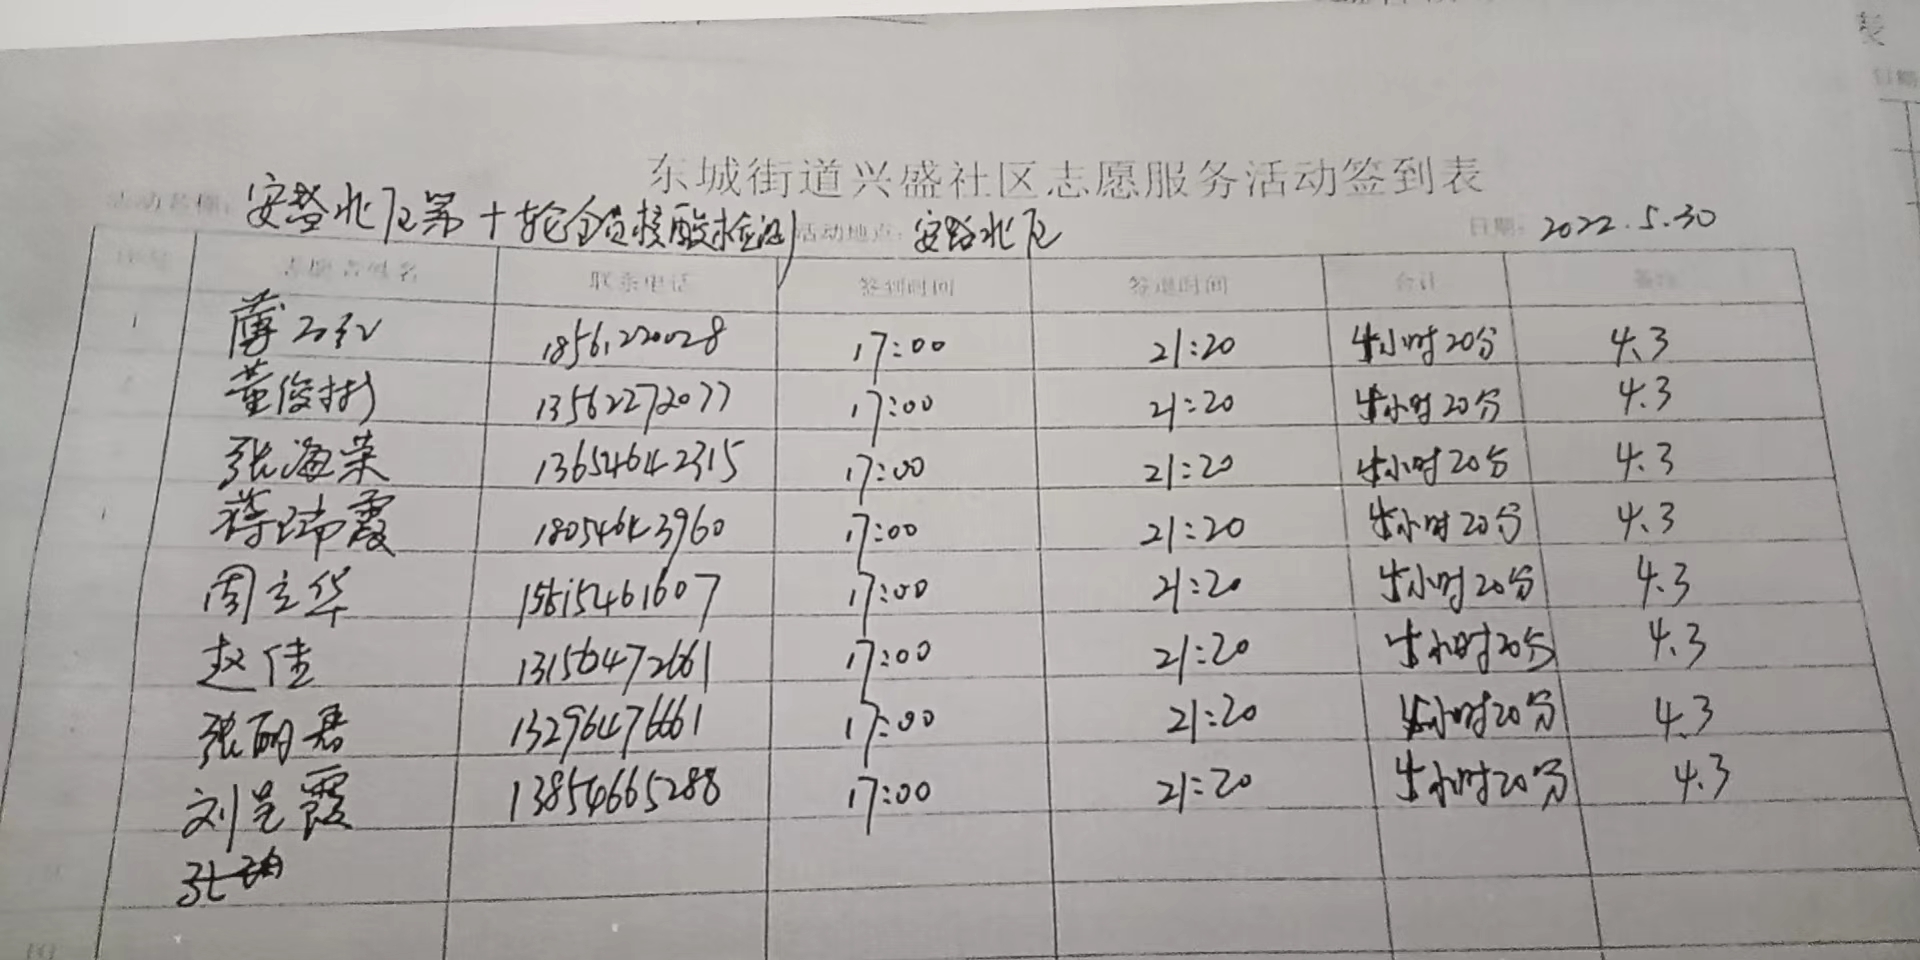 东城街道兴盛社区志愿服务活动签到表
活动名称: 安盛北区第十轮全员核酸检测 活动地点: 安盛北区 日期: 2022.5.30
序号 志愿者姓名 联系电话 签到时间 签退时间 合计 备注
1 薄 18561220028 17:00 21:20 4小时20分 4.3
2 董俊树 13562272077 17:00 21:20 4小时20分 4.3
张海荣 13654642315 17:00 21:20 4小时20分 4.3
蒋瑞霞 18054643960 17:00 21:20 4小时20分 4.3
周立华 15615461607 17:00 21:20 4小时20分 4.3
赵佳 13156472661 17:00 21:20 4小时20分 4.3
张丽君 13296476661 17:00 21:20 4小时20分 4.3
刘芝霞 13854665288 17:00 21:20 4小时20分 4.3
10
表
日期